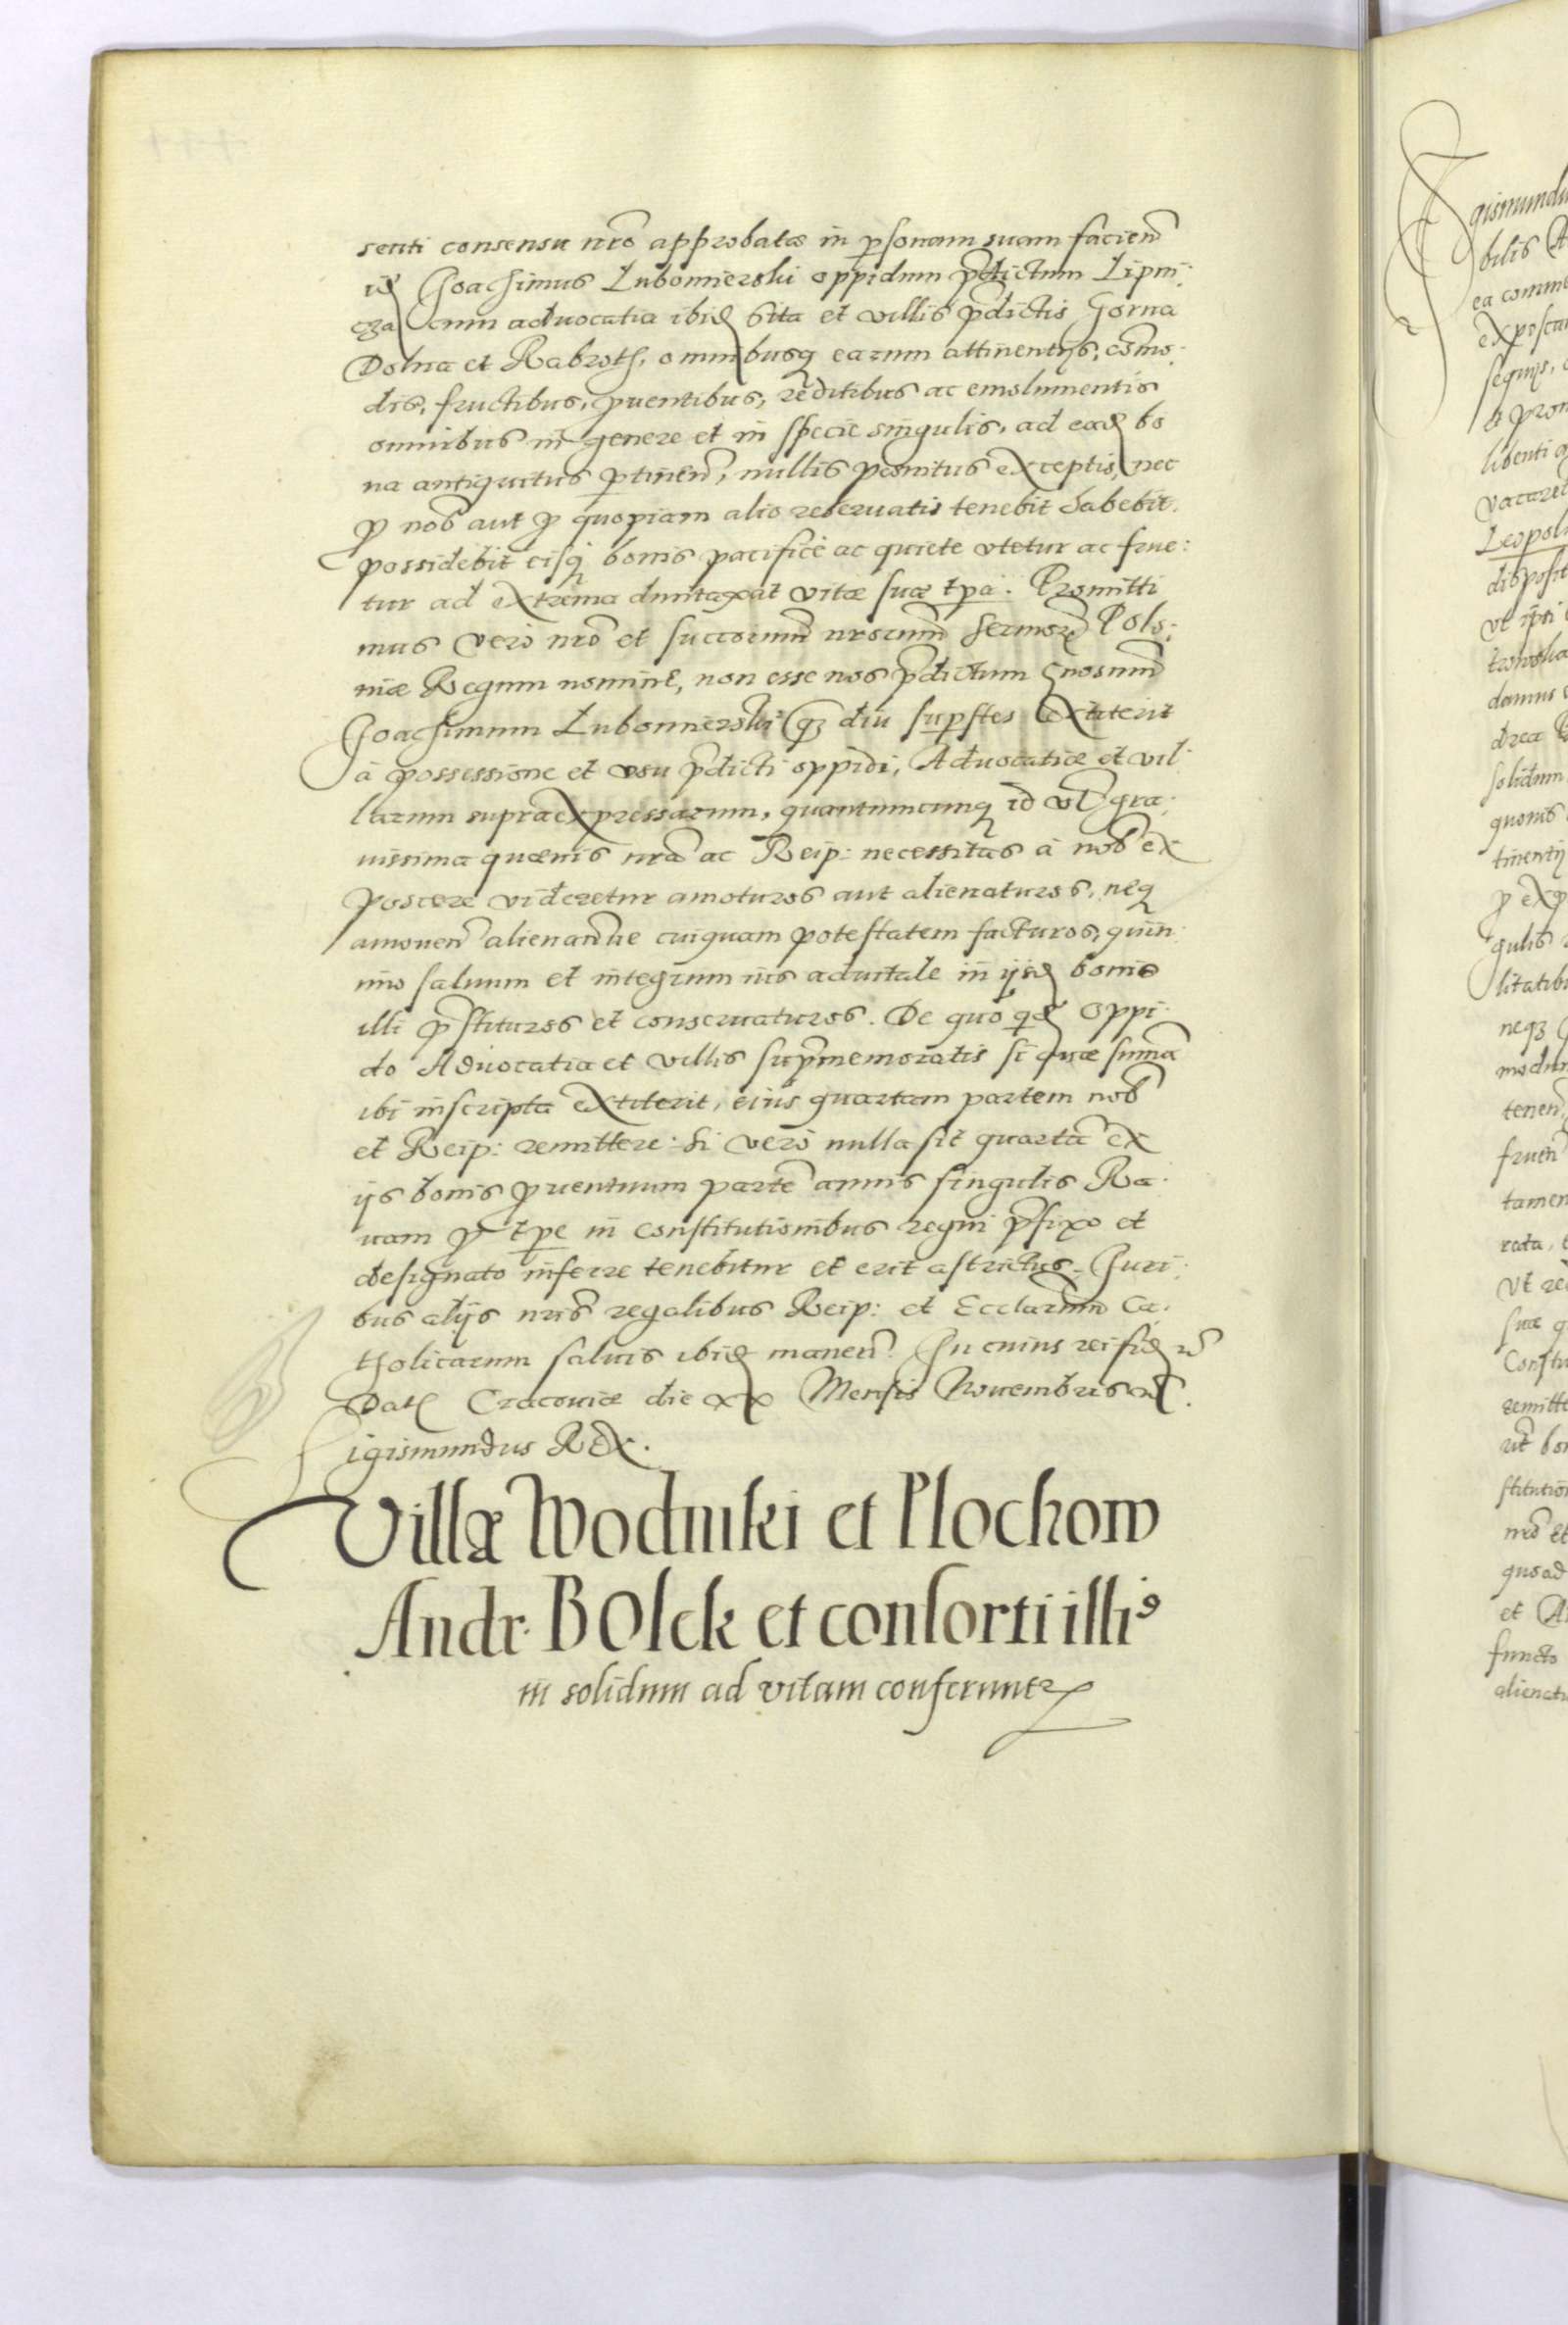 senti consensu nrõ approbatas in psonam suam facien̄
id Joachimus Lubomierski oppidum p̄dictum Lipni:
cza cum aduocatia ibid sita et villis p̄dictis Gorna
Dolna et Rabroth, omnibusq earum attinentijs, com̄o:
dis, fructibus, puentibus, redditibus ac emolumentis
omnibus in genere et in specie singulis, ad ead bo
na antiquitus ptinen̄, nullis poenitus exceptis, nec
p nob aut p quopiam alio reseruatis tenebit habebit.
possidebit eisq bonis pacifice ac quiete vtetur ac frue:
tur ad extrema duntaxat vitæ suæ tpa. Promitti
mus vero nrõ et succorum nrorum Sermorᷓ Polo:
niæ Regum nomine, non esse nos p̄dictum gnosum
Joachimum Lubomierski qͣ diu supstes extiterit
à possessione et vsu p̄dicti oppidi, Aduocatiæ et vil:
larum supraexpressarum, quantumcunq id vel gra:
uissima quæuis nrã ac Reip: necessitas à nob ex
poscere videretur amoturos aut alienaturos, neq
amouen̄ alienandve cuiquam potestatem facturos, quin:
imo saluum et integrum ius aduitale in ijsd bonis
illi p̄stituros et conseruaturos. De quo qd oppi:
do Aduocatia et villis supmemoratis si quæ sum̄a
ibi inscripta extiterit, eius quartam partem nob
et Reip: remittere. Si vero nulla sit quartã ex
ijs bonis puentuum partẽ annis singulis Ra:
uam p tpe in constitutionibus regni p̄fixo et
designato inferre tenebitur et erit astrictus. Juri:
bus alijs nris regalibus Reip: et Ecclarum Ca:
tholicarum saluis ibid manen̄. In cuius rei fid
Dat Cracouiæ die xx Mensis Nouembris
Sigismundus Rex.
Villæ Wodniki et Plochow
Andr. BOlck et consorti illiꝰ
in solidum ad vitam conferuntr
gismundu
bilis A
ea comme
exposcan
sequijs,
libenti a
vacare
Leopol
disposit
vt ipsi
damus
drea
solidum
quouis
tinentij
p exp
gulis
litatib
neq
modum
tenen̄
fruen̄
tamen
rata,
vt re
suæ q
Constitu
remitte
bon
stitution
nrõ et
quoad
et A
functo
alienatu